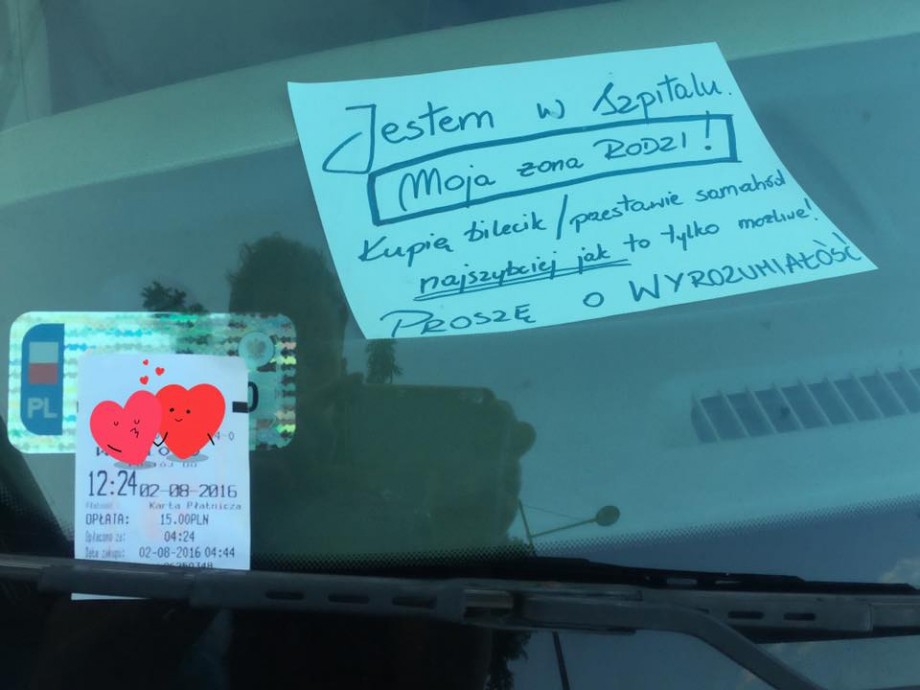 Jestem w Szpitalu.
Moja żona RODZI!
Kupię bilecik / przestawię samahód
najszybciej jak to tylko możliwe!
PROSZĘ o WYROZUMIAŁOŚĆ
PL
12:24 02-08-2016
Karta Płatnicza
OPŁATA: 15.00PLN
Opłacono za: 04:24
Data zakupu: 02-08-2016 04:44